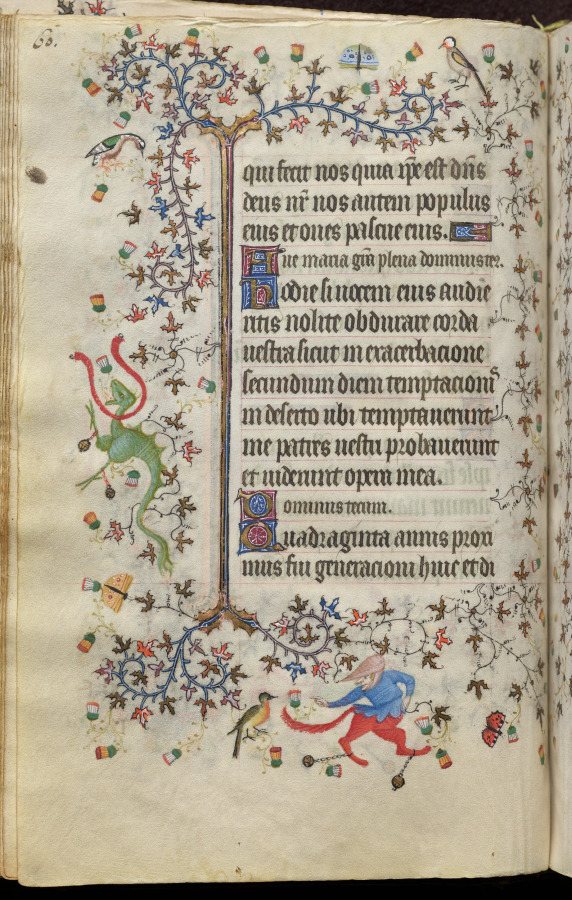 60.
qui fecit nos quia ip̄e est dn̄s
deus nr̄ nos autem populus
eius et oues pascue eius.
Aue maria grā plena dominus ter.
Hodie si uocem eius audie
ritis nolite obdurare corda
uestra sicut in exacerbacione
secundum diem temptacionis
in deserto ubi temptauerunt
me patres uestri probauerunt
et uiderunt opera mea.
Dominus tecum.
Quadraginta annis proxi
mus fui generacioni huic et di